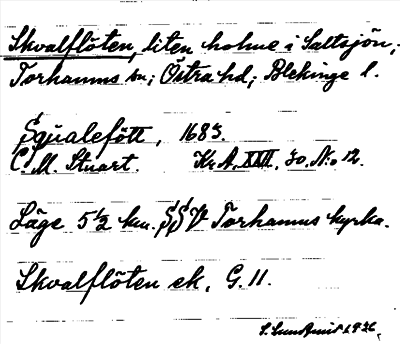 Skvalflöten, liten holme i Saltsjön,
Torhamns sn; Östra hd; Blekinge l.
Squalefött, 1683.
C. M. Stuart. Kr. A. XXII, 30. No 12.
Läge 5 1/2 km. SSV Torhamns kyrka.
Skvalflöten ek. G. 11.
1936